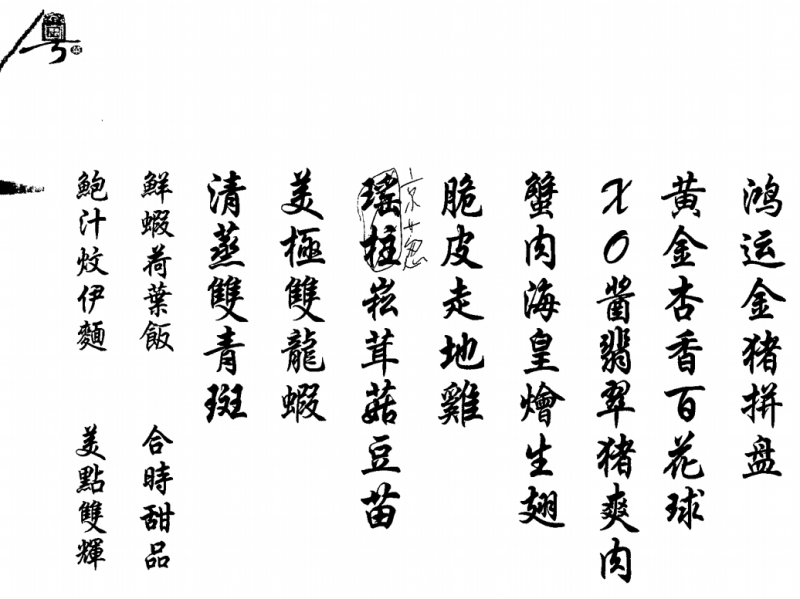 鸿运金猪拼盘
黄金杏香百花球
XO酱翡翠猪爽肉
蟹肉海皇燴生翅
脆皮走地雞
瑤柱崧茸菇豆苗
京葱
美極雙龍蝦
清蒸雙青斑
鮮蝦荷葉飯
合時甜品
鮑汁炆伊麵
美點雙輝
粵